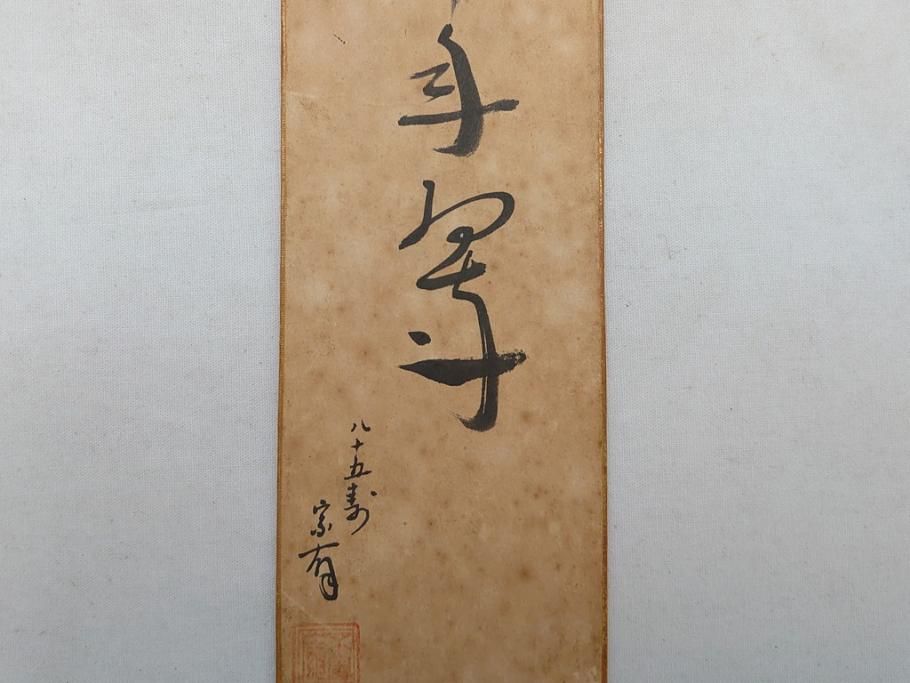 年翠
八十五寿
宗有